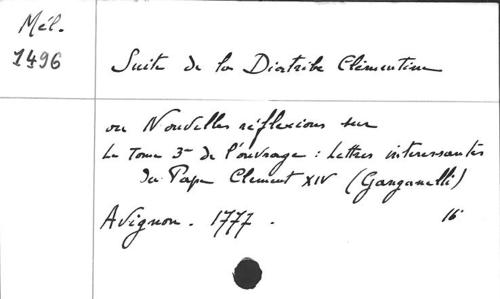 Mél.
1496
Suite de la Diatribe Clémentine
ou Nouvelles réflexions sur
Le Tome 3me de l'ouvrage : Lettres interessantes
du Pape Clement XIV (Ganganelli)
Avignon. 1777. 16°